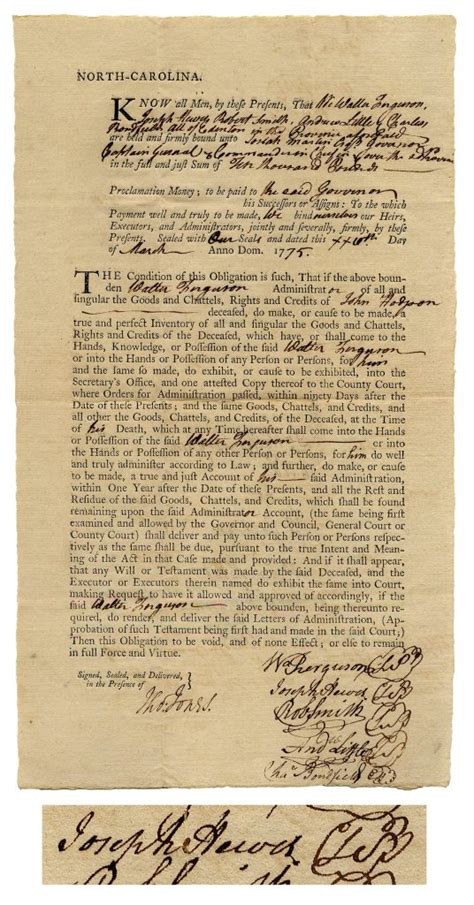 NORTH-CAROLINA.
KNOW all Men, by these Presents, That We Walter Ferguson,
Joseph Hewes Robert Smith, Andrew Little & Charles
Bondfield all of Edenton in the Province aforesaid
are held and firmly bound unto Josiah Martin Esqr Governor
Captain General & Commander in Chief in & over the
in the full and just Sum of Ten thousand Pounds
Proclamation Money; to be paid to the said Governor
his Successors or Assigns: To the which
Payment well and truly to be made, We bind ourselves our Heirs,
Executors, and Administrators, jointly and severally, firmly, by these
Presents. Sealed with Our Seals and dated this Day
of March Anno Dom. 1775.
THE Condition of this Obligation is such, That if the above boun-
den Walter Ferguson Administrator of all and
singular the Goods and Chattels, Rights and Credits of John Hodgson
deceased, do make, or cause to be made, a
true and perfect Inventory of all and singular the Goods and Chattels,
Rights and Credits of the Deceased, which have, or shall come to the
Hands, Knowledge, or Possession of the said Walter Ferguson
or into the Hands or Possession of any Person or Persons, for him
and the same so made, do exhibit, or cause to be exhibited, into the
Secretary's Office, and one attested Copy thereof to the County Court,
where Orders for Administration passed, within ninety Days after the
Date of these Presents; and the same Goods, Chattels, and Credits, and
all other the Goods, Chattels, and Credits, of the Deceased, at the Time
of his Death, which at any Time hereafter shall come into the Hands
or Possession of the said Walter Ferguson or into
the Hands or Possession of any other Person or Persons, for him do well
and truly administer according to Law; and further, do make, or cause
to be made, a true and just Account of his said Administration,
within One Year after the Date of these Presents, and all the Rest and
Residue of the said Goods, Chattels, and Credits, which shall be found
remaining upon the said Administrator Account, (the same being first
examined and allowed by the Governor and Council, General Court or
County Court) shall deliver and pay unto such Person or Persons respect-
ively as the same shall be due, pursuant to the true Intent and Mean-
ing of the Act in that Case made and provided: And if it shall appear,
that any Will or Testament was made by the said Deceased, and the
Executor or Executors therein named do exhibit the same into Court,
making Request to have it allowed and approved of accordingly, if the
said Walter Ferguson above bounden, being thereunto re-
quired, do render, and deliver the said Letters of Administration, (Ap-
probation of such Testament being first had and made in the said Court;)
Then this Obligation to be void, and of none Effect; or else to remain
in full Force and Virtue.
Signed, Sealed, and Delivered,
in the Presence of
Tho. Jones.
W Ferguson
Joseph Hewes
Rob Smith
And Little
Chas Bondfield
Joseph Hewes